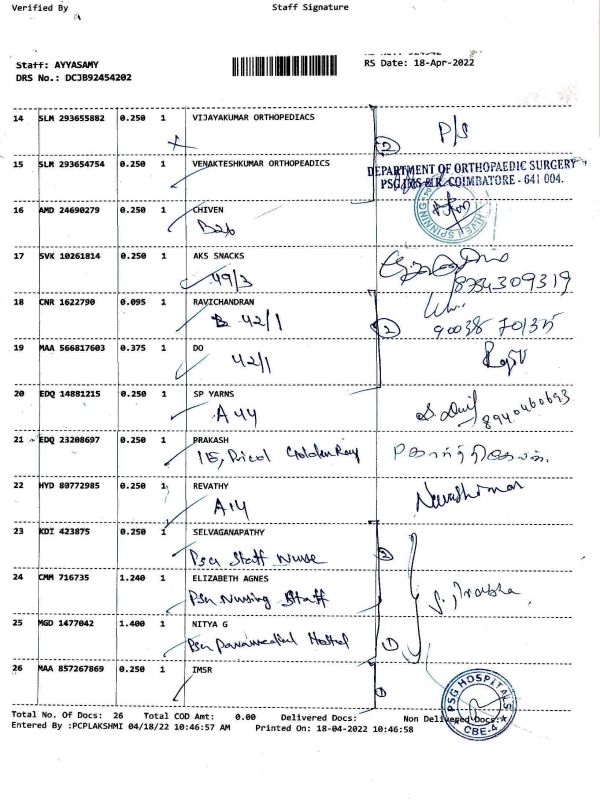 Verified By Staff Signature
Staff: AYYASAMY
DRS No.: DCJB92454202
RS Date: 18-Apr-2022
14 SLM 293655882 0.250 1 VIJAYAKUMAR ORTHOPEDIACS
2 P/S
15 SLM 293654754 0.250 1 VENAKTESHKUMAR ORTHOPEADICS
DEPARTMENT OF ORTHOPAEDIC SURGERY
PSG IMS & R. COIMBATORE - 641 004.
16 AMD 24690279 0.250 1 CHIVEN
B26
17 SVK 10261814 0.250 1 AKS SNACKS
49/3
18 CNR 1622790 0.095 1 RAVICHANDRAN
42/1 2
19 MAA 566817603 0.375 1 DO
42/1
20 EDQ 14881215 0.250 1 SP YARNS
A44 8940460693
21 EDQ 23208697 0.250 1 PRAKASH
115, Pricol Golden Ray
22 HYD 80772985 0.250 1 REVATHY
A14
23 KDI 423875 0.250 1 SELVAGANAPATHY
Psg Staff Nurse 2
24 CMM 716735 1.240 1 ELIZABETH AGNES
Psg Nursing Staff S. Prabha
25 MGD 1477042 1.400 1 NITYA G
Psg Paramedical Hostel 1
26 MAA 857267869 0.250 1 IMSR
1
PSG HOSPITALS
CBE-4
Total No. Of Docs: 26 Total COD Amt: 0.00 Delivered Docs: Non Delivered Docs:
Entered By :PCPLAKSHMI 04/18/22 10:46:57 AM Printed On: 18-04-2022 10:46:58